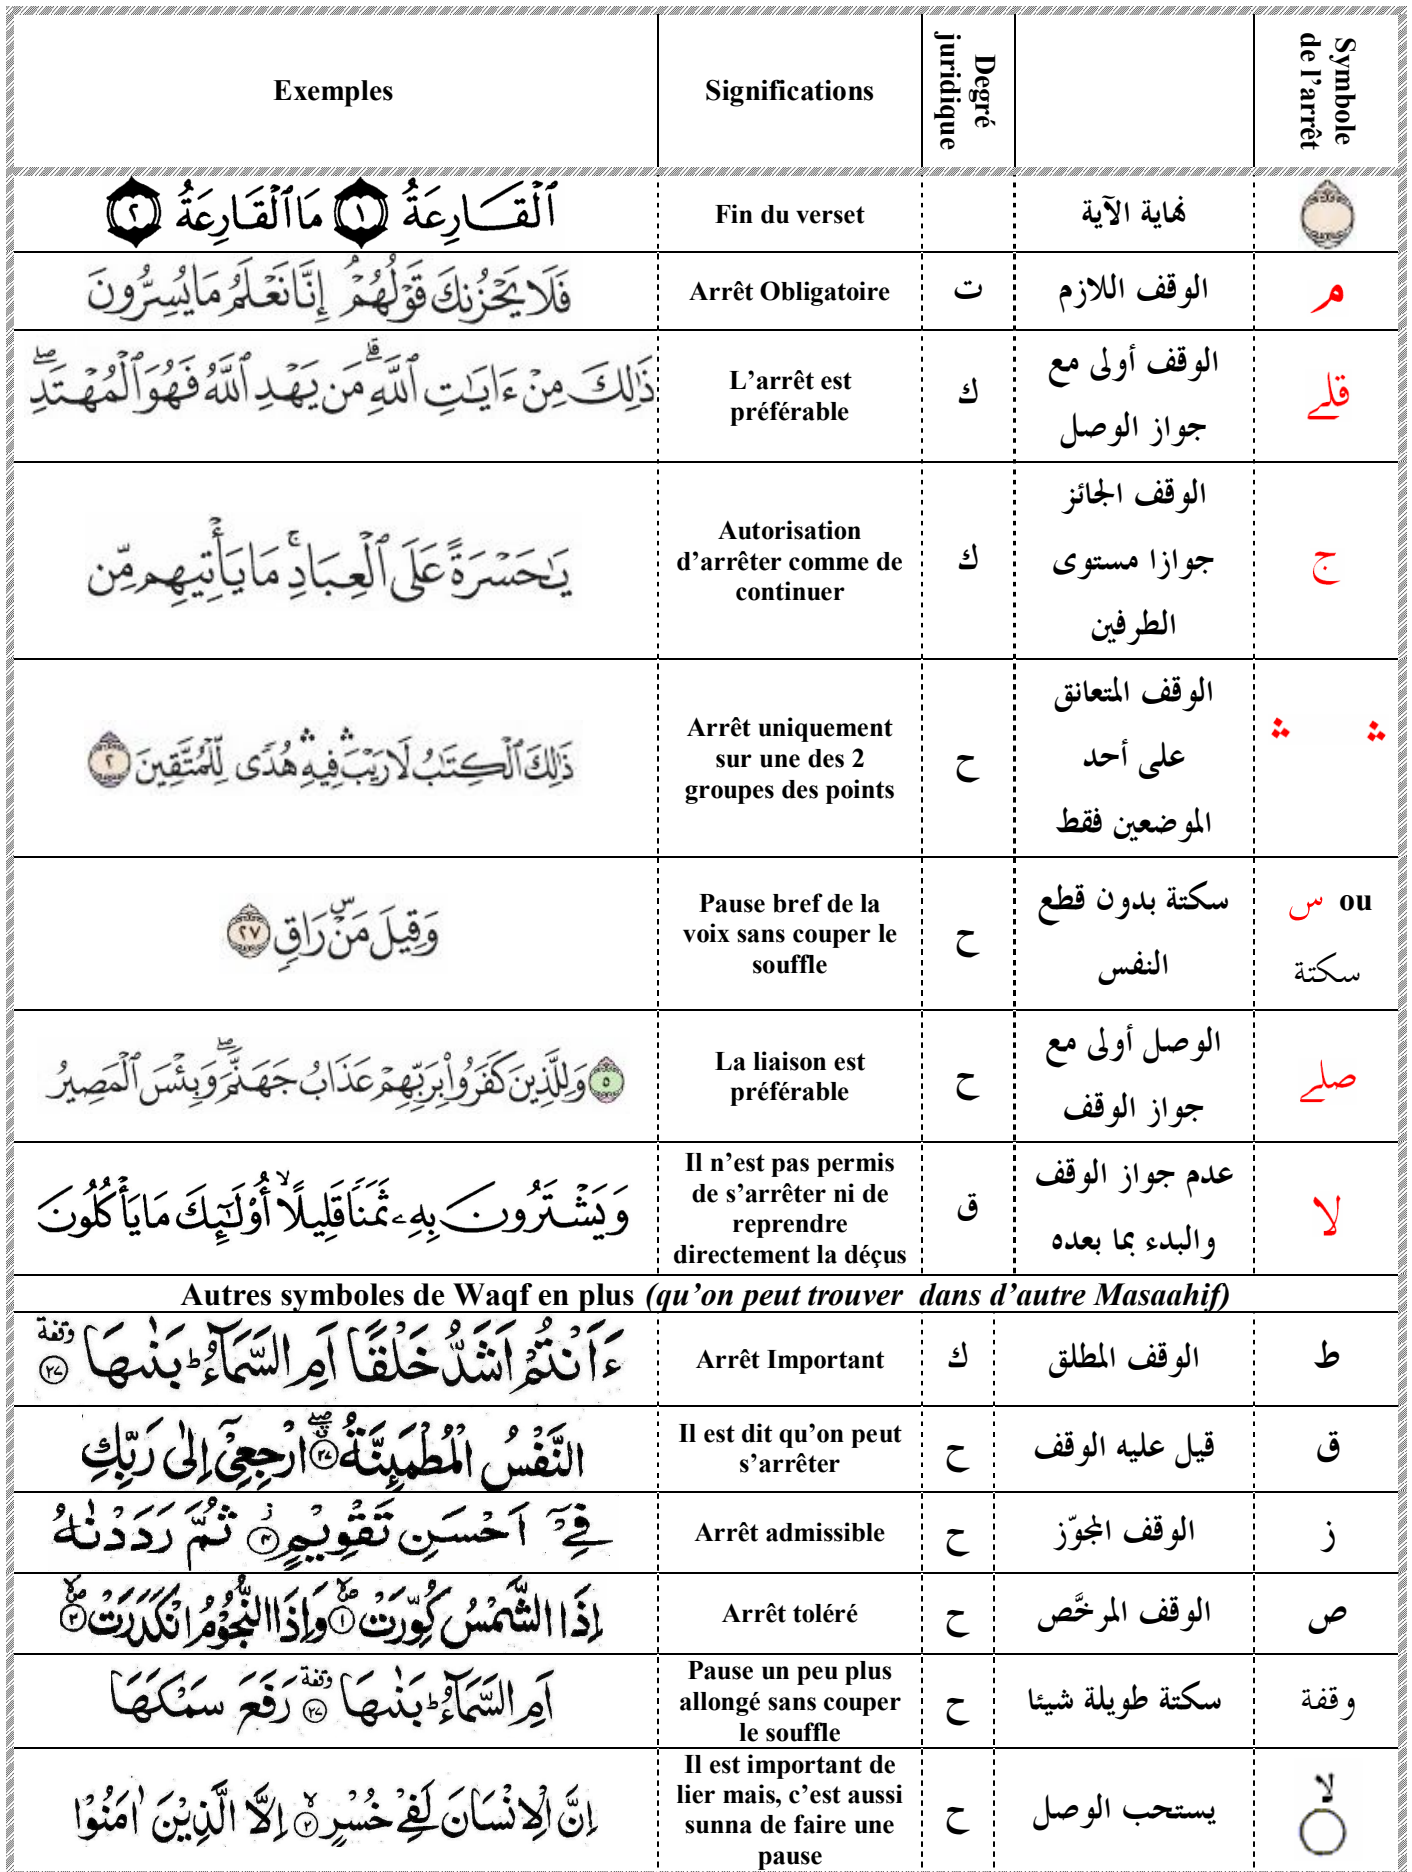 Exemples
Significations
Degré
juridique
Symbole
de l’arrêt
ٱلْقَارِعَةُ ١ مَا ٱلْقَارِعَةُ ٢
Fin du verset
نهاية الآية
فَلَا يَحْزُنكَ قَوْلُهُمْ ۘ إِنَّا نَعْلَمُ مَا يُسِرُّونَ
Arrêt Obligatoire
ت
الوقف اللازم
م
ذَٰلِكَ مِنْ ءَايَٰتِ ٱللَّهِ ۗ مَن يَهْدِ ٱللَّهُ فَهُوَ ٱلْمُهْتَدِ ۖ
L’arrêt est
préférable
ك
الوقف أولى مع
جواز الوصل
قلے
يَٰحَسْرَةً عَلَى ٱلْعِبَادِ ۚ مَا يَأْتِيهِم مِّن
Autorisation
d’arrêter comme de
continuer
ك
الوقف الجائز
جوازا مستوى
الطرفين
ج
ذَٰلِكَ ٱلْكِتَٰبُ لَا رَيْبَ ۛ فِيهِ ۛ هُدًى لِّلْمُتَّقِينَ ٢
Arrêt uniquement
sur une des 2
groupes des points
ح
الوقف المتعانق
على أحد
الموضعين فقط
ۛ ۛ
وَقِيلَ مَنْ ۜ رَاقٍ ٢٧
Pause bref de la
voix sans couper le
souffle
ح
سكتة بدون قطع
النفس
س ou
سكتة
٥ وَلِلَّذِينَ كَفَرُوا۟ بِرَبِّهِمْ عَذَابُ جَهَنَّمَ ۖ وَبِئْسَ ٱلْمَصِيرُ
La liaison est
préférable
ح
الوصل أولى مع
جواز الوقف
صلے
وَيَشْتَرُونَ بِهِۦ ثَمَنًا قَلِيلًا ۙ أُو۟لَٰٓئِكَ مَا يَأْكُلُونَ
Il n’est pas permis
de s’arrêter ni de
reprendre
directement la déçus
ق
عدم جواز الوقف
والبدء بما بعده
لا
Autres symboles de Waqf en plus (qu’on peut trouver dans d’autre Masaahif)
ءَاَنْتُمْ اَشَدُّ خَلْقًا اَمِ السَّمَآءُ ؕ بَنٰىهَا وقفة ٢٧
Arrêt Important
ك
الوقف المطلق
ط
النَّفْسُ الْمُطْمَىِٕنَّةُ ٢٧ ارْجِعِىْٓ اِلٰى رَبِّكِ
Il est dit qu’on peut
s’arrêter
ح
قيل عليه الوقف
ق
فِىْٓ اَحْسَنِ تَقْوِيْمٍ ز ٤ ثُمَّ رَدَدْنٰهُ
Arrêt admissible
ح
الوقف المجوّز
ز
اِذَا الشَّمْسُ كُوِّرَتْ ١ وَاِذَا النُّجُوْمُ انْكَدَرَتْ ٢
Arrêt toléré
ح
الوقف المرخَّص
ص
اَمِ السَّمَآءُ ؕ بَنٰىهَا وقفة ٢٧ رَفَعَ سَمْكَهَا
Pause un peu plus
allongé sans couper
le souffle
ح
سكتة طويلة شيئا
وقفة
اِنَّ الْاِنْسَانَ لَفِىْ خُسْرٍ لا ٢ اِلَّا الَّذِيْنَ اٰمَنُوْا
Il est important de
lier mais, c’est aussi
sunna de faire une
pause
ح
يستحب الوصل
لا